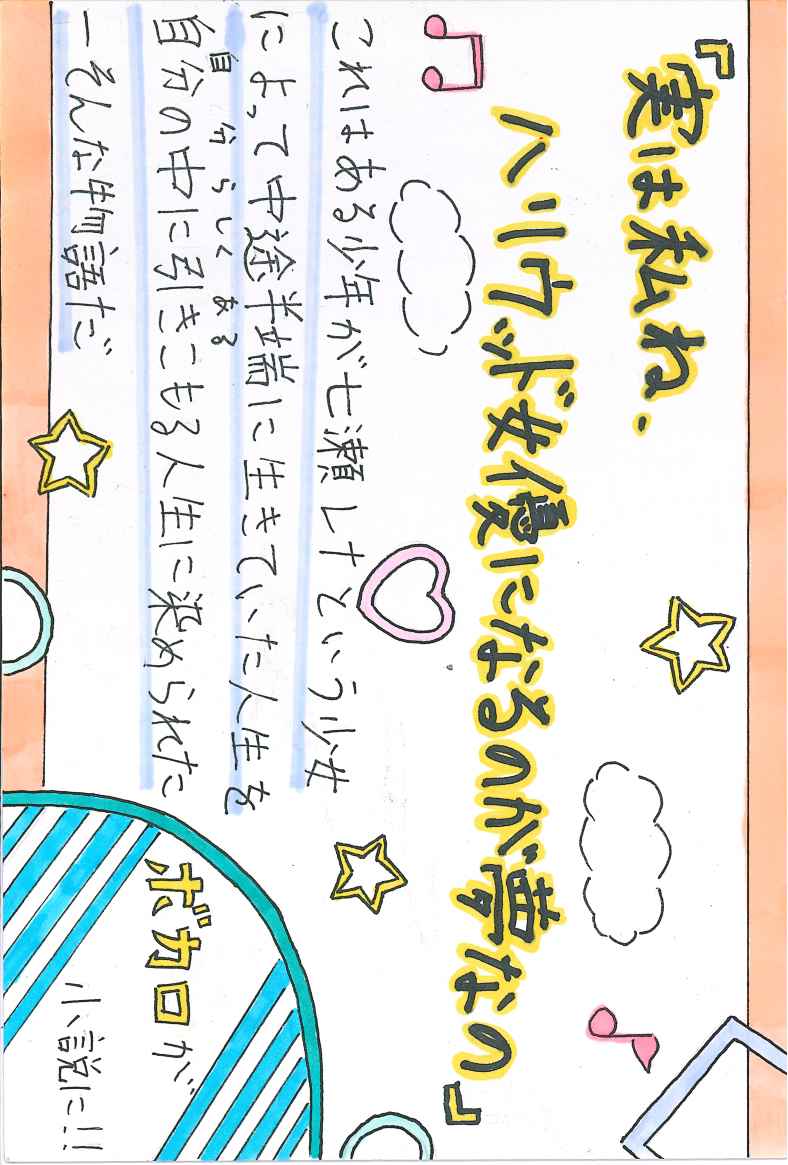 『実は私ね.
ハリウッド女優になるのが夢なの』
これはある少年が七瀬レナという少女
によって中途半端に生きていた人生を
自分らしくある
自分の中に引きこもる人生に染められた
ーそんな物語だ
ボカロが
小説に!!